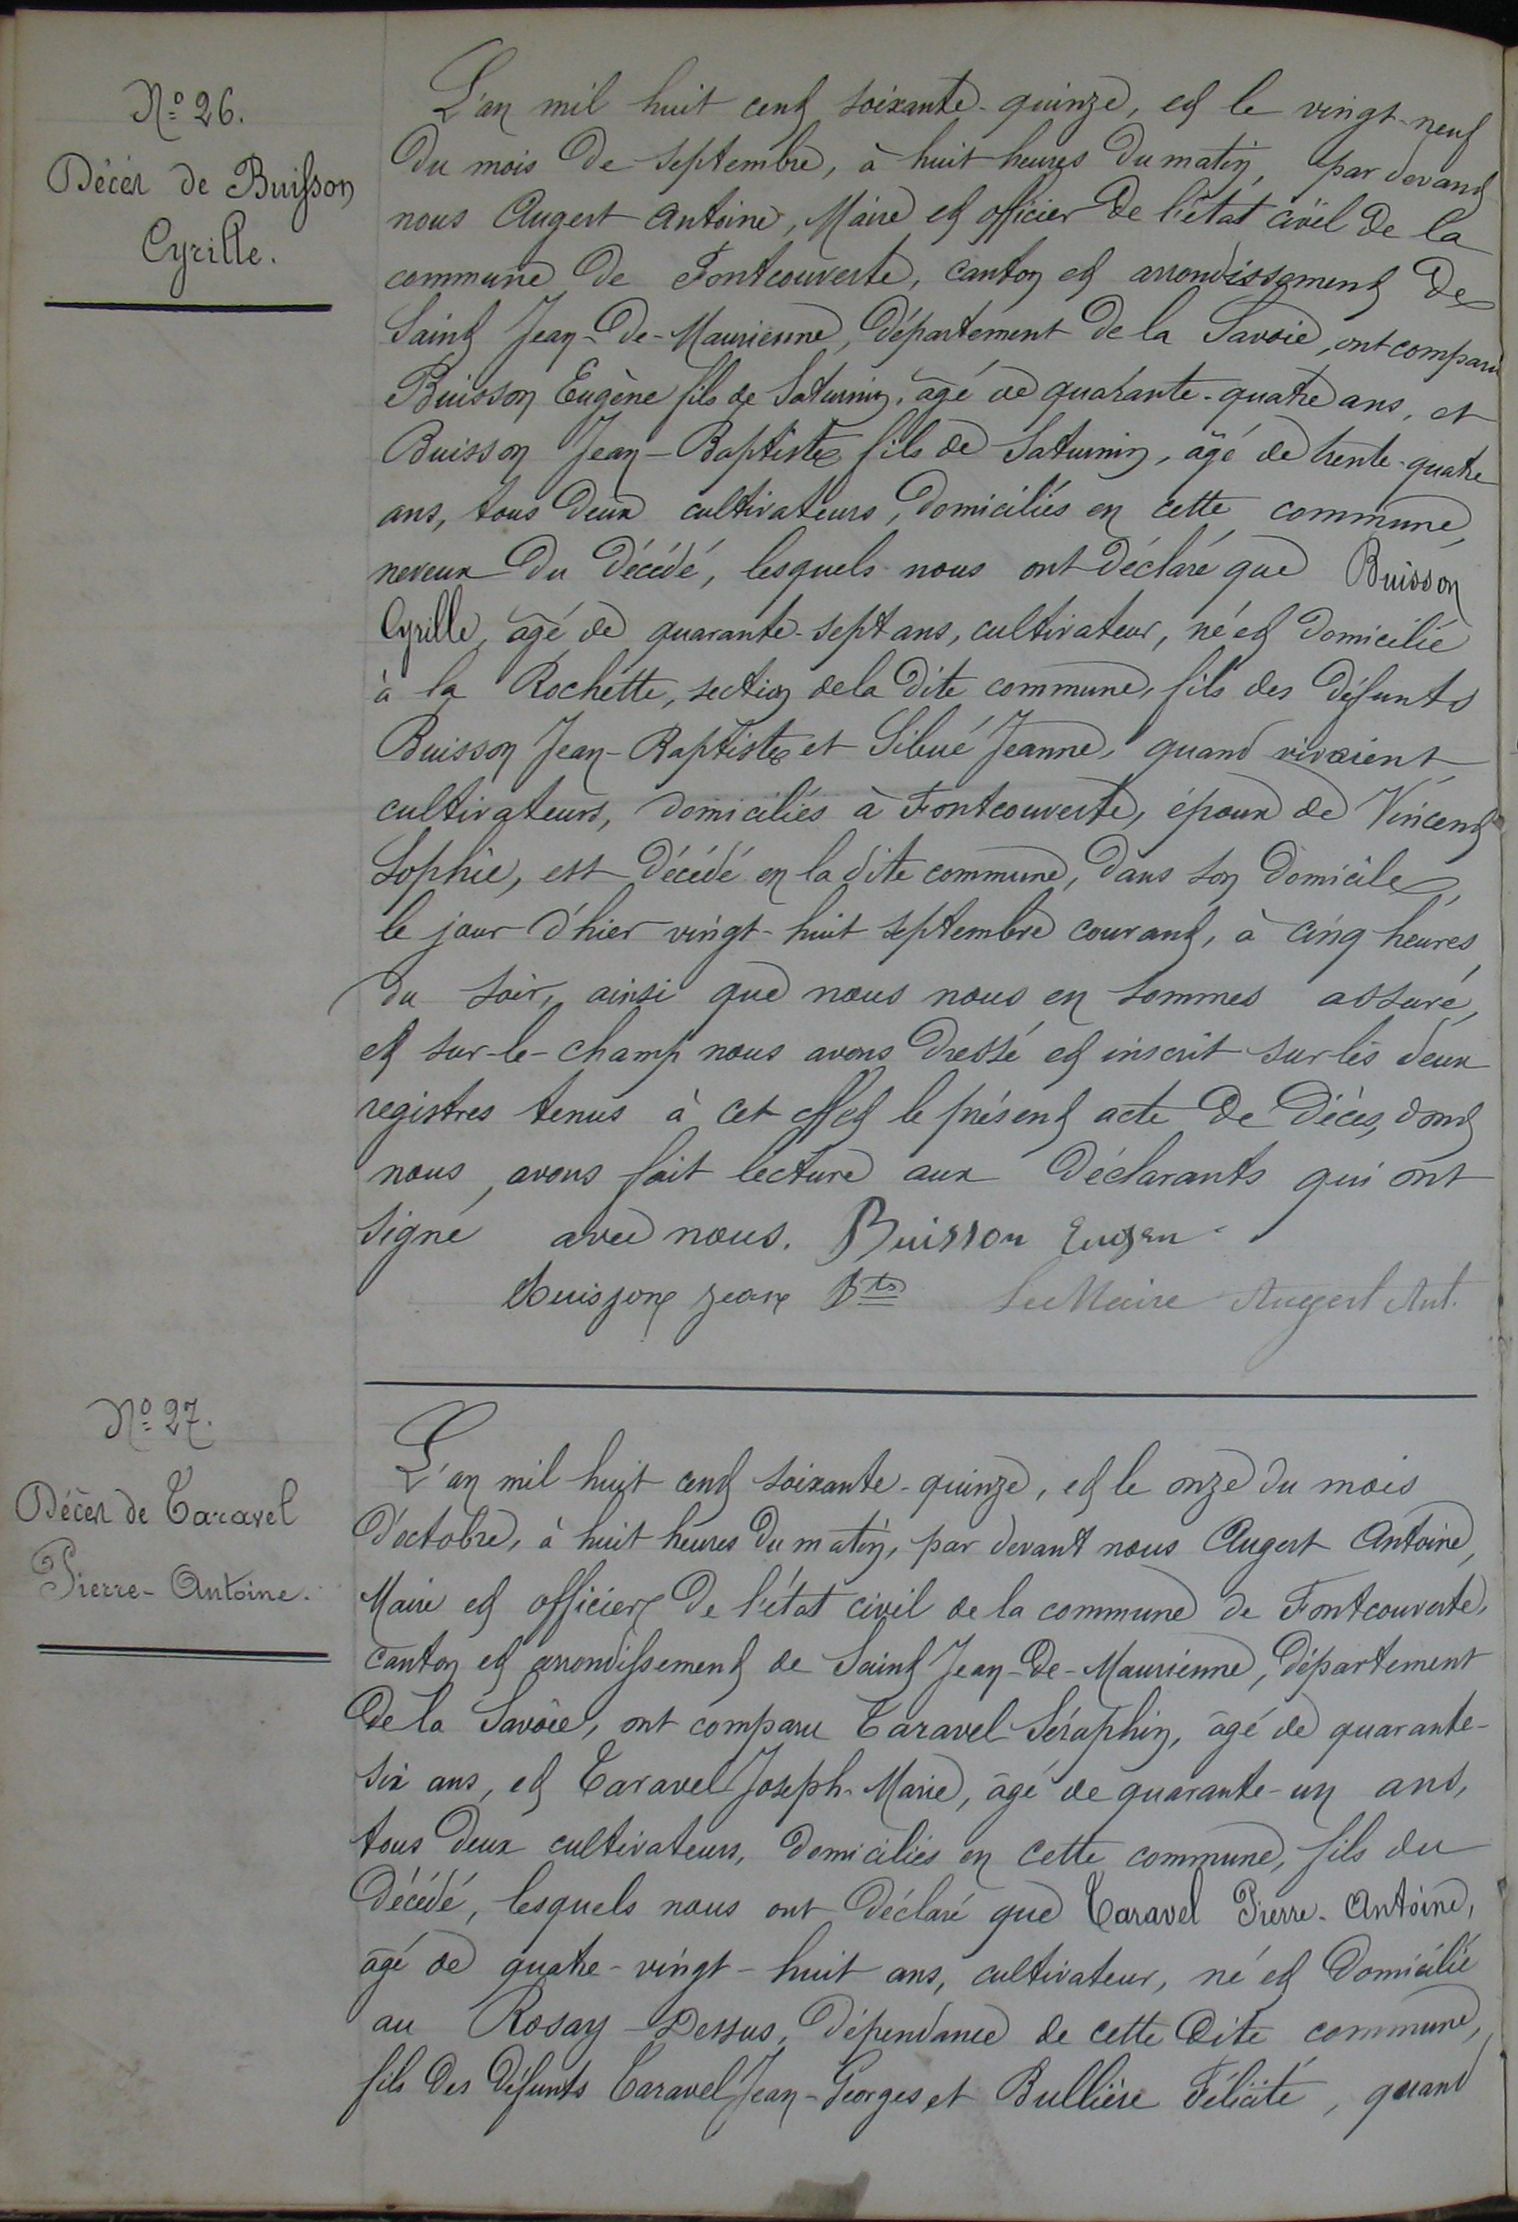 Nº 26.
Décès de Buisson
Cyrille.
L'an mil huit cent soixante-quinze, et le vingt-neuf
du mois de septembre, à huit heures du matin, par devant
nous Augert Antoine, Maire et officier de l'état civil de la
commune de Fontcouverte, canton et arrondissement de
Saint Jean-de-Maurienne, département de la Savoie, ont comparu
Buisson Eugène fils de Saturnin, âgé de quarante-quatre ans, et
Buisson Jean-Baptiste fils de Saturnin, âgé de trente-quatre
ans, tous deux cultivateurs, domiciliés en cette commune,
neveux du décédé, lesquels nous ont déclaré que Buisson
Cyrille, âgé de quarante-sept ans, cultivateur, né et domicilié
à la Rochette, section de la dite commune, fils des défunts
Buisson Jean-Baptiste et Sibué Jeanne, quand vivaient
cultivateurs, domiciliés à Fontcouverte, époux de Vincent
Sophie, est décédé en la dite commune, dans son domicile,
le jour d'hier vingt-huit septembre courant, à cinq heures
du soir, ainsi que nous nous en sommes assuré,
et sur-le-champ nous avons dressé et inscrit sur les deux
registres tenus à cet effet le présent acte de décès, dont
nous avons fait lecture aux déclarants qui ont
signé avec nous. Buisson Eugen
Buisson jean Bte Le Maire Augert Ant.
Nº 27.
Décès de Taravel
Pierre-Antoine.
L'an mil huit cent soixante-quinze, et le onze du mois
d'octobre, à huit heures du matin, par devant nous Augert Antoine,
Maire et officier de l'état civil de la commune de Fontcouverte,
canton et arrondissement de Saint Jean-de-Maurienne, département
de la Savoie, ont comparu Taravel Séraphin, âgé de quarante-
six ans, et Taravel Joseph-Marie, âgé de quarante-un ans,
tous deux cultivateurs, domiciliés en cette commune, fils du
décédé, lesquels nous ont déclaré que Taravel Pierre-Antoine,
âgé de quatre-vingt-huit ans, cultivateur, né et domicilié
au Rosay-Dessus, dépendance de cette dite commune,
fils des défunts Taravel Jean-Georges et Bullière Félicité, quand